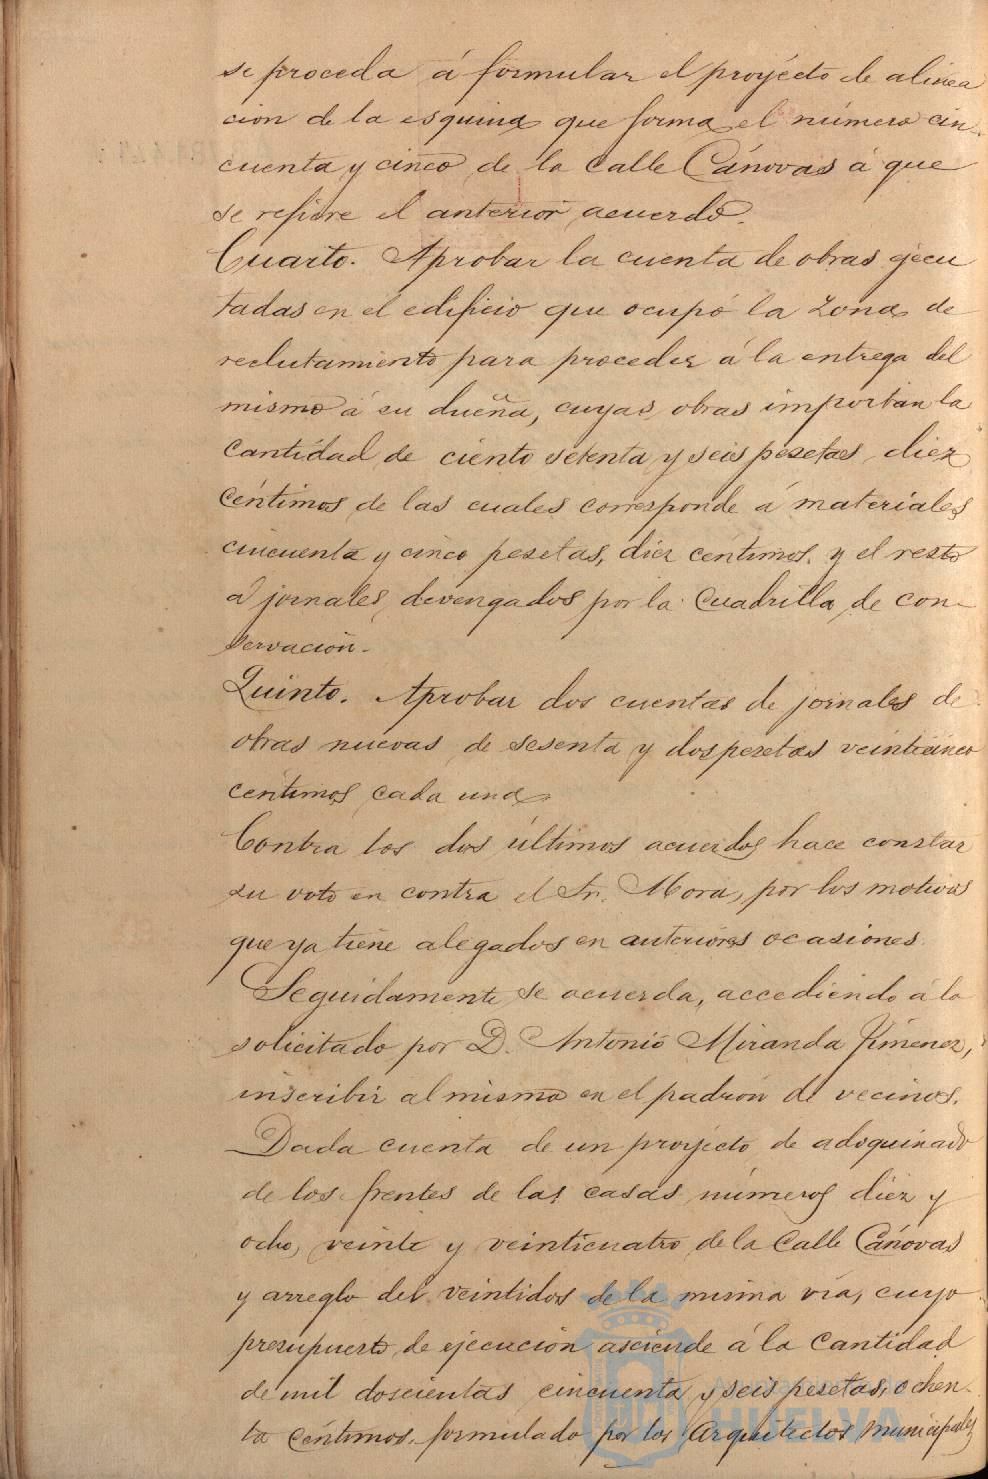 se proceda á formular el proyécto de alinea
cion de la esquina que forma el número cin-
cuenta y cinco de la calle Cánovas á que
se refiere el anterior acuerdo.
Cuarto. Aprobar la cuenta de obras ejecu
tadas en el edificio que ocupó la zona de
reclutamiento para proceder á la entrega del
mismo á su dueña, cuyas obras importan la
cantidad de ciento setenta y seis pesetas diez
céntimos de las cuales corresponde á materiales
cincuenta y cinco pesetas, diez céntimos. y el resto
á jornales devengados por la Cuadrilla de con-
servación.
Quinto. Aprobar dos cuentas de jornales de
obras nuevas de sesenta y dos pesetas veinticinco
céntimos cada una.
Contra los dos últimos acuerdos hace constar
su voto en contra el Sr. Mora, por los motivos
que ya tiene alegados en anteriores ocasiones.
Seguidamente se acuerda, accediendo á lo
solicitado por D. Antonio Miranda Jiménez,
inscribir al mismo en el padrón de vecinos.
Dada cuenta de un proyecto de adoquinado
de los frentes de las casas números diez y
ocho, veinte y veinticuatro de la Calle Cánovas
y arreglo del veintidos de la misma vía, cuyo
presupuesto de ejecución asciende á la cantidad
de mil doscientas cincuenta y seis pesetas, ochen-
ta céntimos. formulado por los Arquitectos municipales
Ayuntamiento de
HUELVA